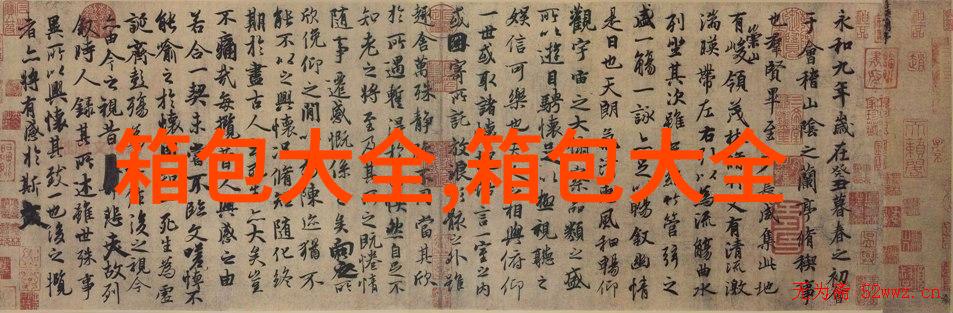 永和九年歲在癸丑暮春之初會
于會稽山陰之蘭亭脩稧事
也群賢畢至長咸集此地
有崇山峻領茂林又有清流激
湍暎帶左右以為流觴曲水
列坐其次雖絲竹管弦之
盛一觴一詠之暢敘幽情
是日也天朗風和暢仰
觀宇宙之大品類之盛
所以遊目騁懷以極視聽之
娛信可樂也相與俯仰
一世或取諸言一室之內
或因寄所託放浪形骸之外雖
趣舍萬殊靜同當其欣
於所遇蹔得怏然自足不
知老之將至及其之既惓情
隨事遷感慨係矣向之所
欣俛仰之閒以陳迹猶不
能不以之興懷況脩短隨化終
期於盡古人生大矣豈
不痛哉每攬昔人興感之由
若合一契未嘗不臨文嗟悼不
能喻之於懷一死生為虛
誕齊彭殤後之視今
今之視昔悲夫故列
敘時人錄其所述雖世殊事
異所以興懷其致一也後之攬
者亦將有感於斯文
箱包大全,箱包大全
无为斋 52wwz.cn